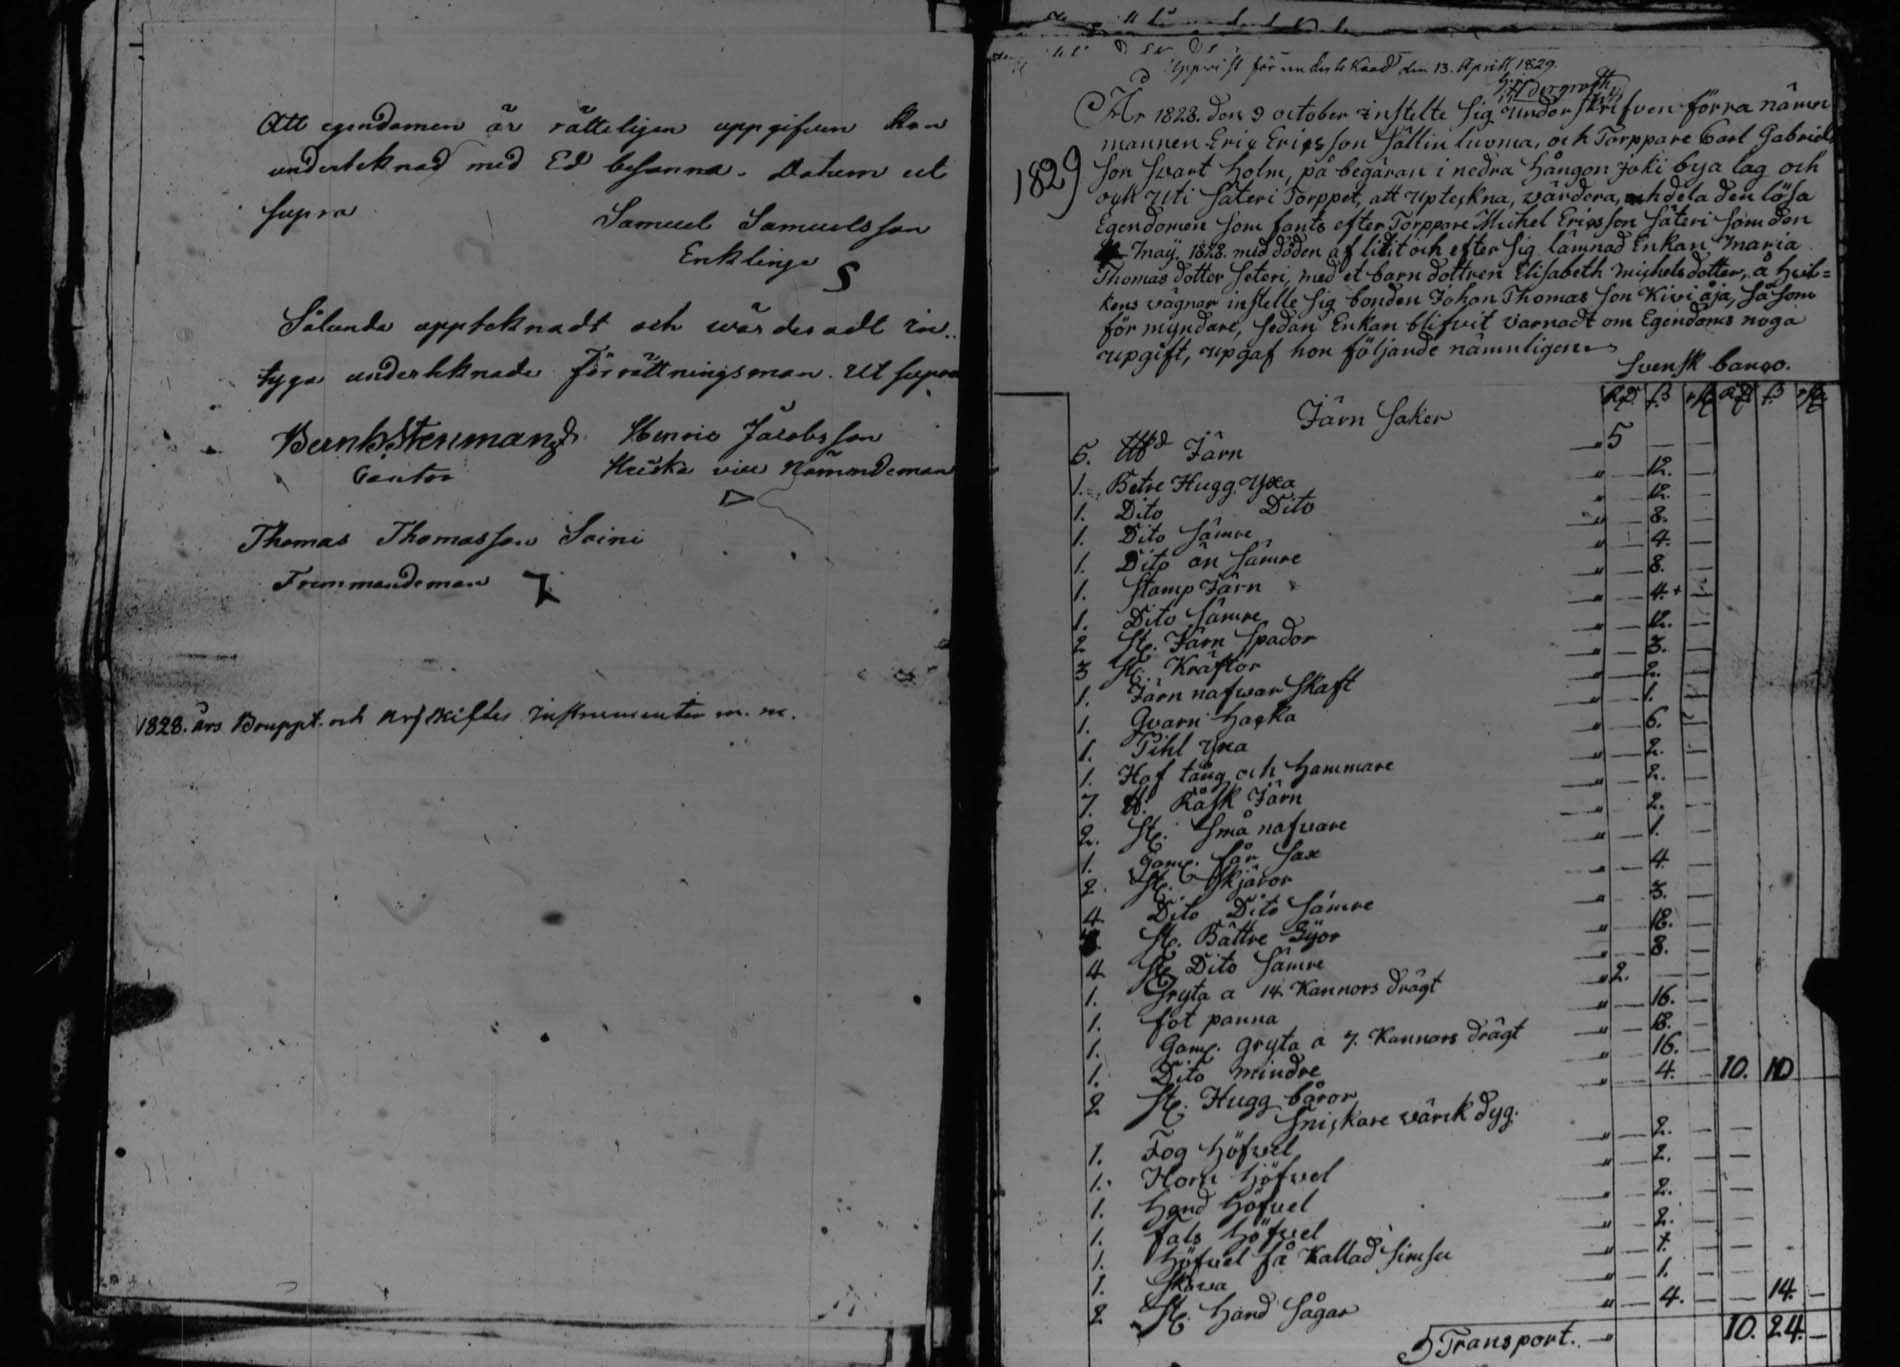 Att egendomen är rätteligen uppgifven kan
underteknad med Ed besanna. Datum ut
supra
Samuel Samuelsson
Enklinge
S
Sålunda uppteknadt och wärderadt in-
tyga underteknade förrättningsman. Ut supra
Stenman Henric Jacobsson
Cantor Heiska vice Nämndeman
Thomas Thomasson Soini
Fremmandeman
1828. års Bouppt. och Arfskiftes instrumenter m. m.
den 13. Aprill 1829.
1829
År 1828. den 9 october instelte sig underskrifven förra nämn
mannen Eric Ericsson Sällin luoma, och Torppare Carl Gabriel
son Svart holm, på begäran i nedra Hångon Joki bya lag och
ock uti Säteri Torppet, att upteckna, värdera, och dela den lösa
Egendomen som fants efter Torppare Michel Ericsson Säteri som den
May. 1828. med döden af lidit och efter sig lämnad Enkan Maria
Thomas dotter Seteri, med et barn dottren Elisabeth Michelsdotter, å hvil=
kens vägnar instelte sig bonden Johan Thomas son Kivi oja, så som
för myndare, sedan Enkan blifvit varnadt om Egendoms noga
upgift, upgaf hon följande nämnligen
Svensk banco.
Järn Saker
5. Järn 5 — —
1. Betre Hugg Yxa — 12. —
1. Dito Dito — 12. —
1. Dito Sämre — 8. —
1. Dito än Sämre — 4. —
1. Stamp Järn — 8. —
1. Dito Sämre — 4. —
2 St. Järn Spador — 12. —
3 St. Kräftor — 3. —
1. Järn nafvar Skaft — 2. —
1. Qvarn Hacka — 1. —
1. Pihl Yxa — 6. —
1. Hof tång och Hammare — 2. —
7. ℔. Råsk Järn — 2. —
2. St. Små nafvare — 2. —
1. Gam. får Sax — 1. —
2 St. Skjäror — 4 —
4 Dito Dito Sämre — 3. —
St. Bättre Lyor — 18. —
4 St Dito Sämre — 8. —
1. Gryta a 14. Kannors drägt 2. — —
1. fot panna — 16. —
1. Gam. gryta a 7. Kannors drägt — 18. —
1. Dito mindre — 16. —
2 St. Hugg båror — 4. — 10. 10
Snickare värck dyg.
1. Fog Höfvel — 2. —
1. Horn Höfvel — 2. —
1. Hand Höfvel — 2. —
1. fals Höfvel — 2. —
1. Höfvel så Kallad Simsu — 1. —
1. Skava — 1. —
2 St. Hand Sågar — 4. — — 14. —
Transport. 10. 24. —